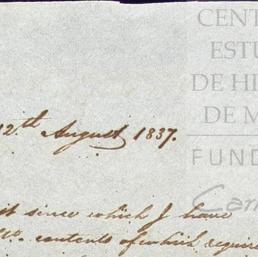 CENT
ESTU
DE HI
DE M
FUND
Car
12th August 1837.
st since which I have
Wo. contents of which requir